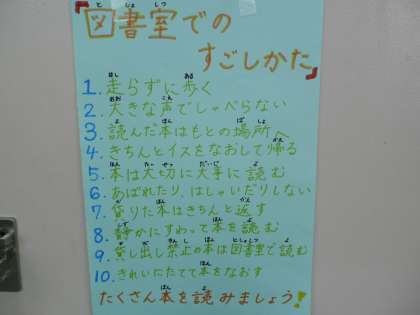 『図書室での
すごしかた』
1. 走らずに歩く
2. 大きな声でしゃべらない
3. 読んだ本はもとの場所へ
4. きちんとイスをなおして帰る
5. 本は大切に大事に読む
6. あばれたり、はしゃいだりしない
7. 貸りた本はきちんと返す
8. 静かにすわって本を読む
9. 貸し出し禁止の本は図書室で読む
10. きれいにたてて本をなおす
たくさん本を読みましょう!